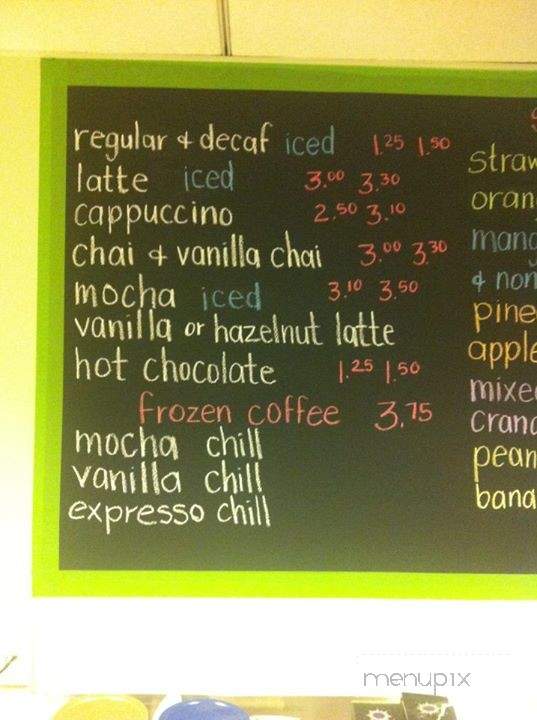 regular & decaf iced 1.25 1.50
latte iced 3.00 3.30
cappuccino 2.50 3.10
chai & vanilla chai 3.00 3.30
mocha iced 3.10 3.50
vanilla or hazelnut latte
hot chocolate 1.25 1.50
frozen coffee 3.75
mocha chill
vanilla chill
expresso chill
straw
oran
mang
& non
pine
apple
mixed
cran
pean
bana
menupix